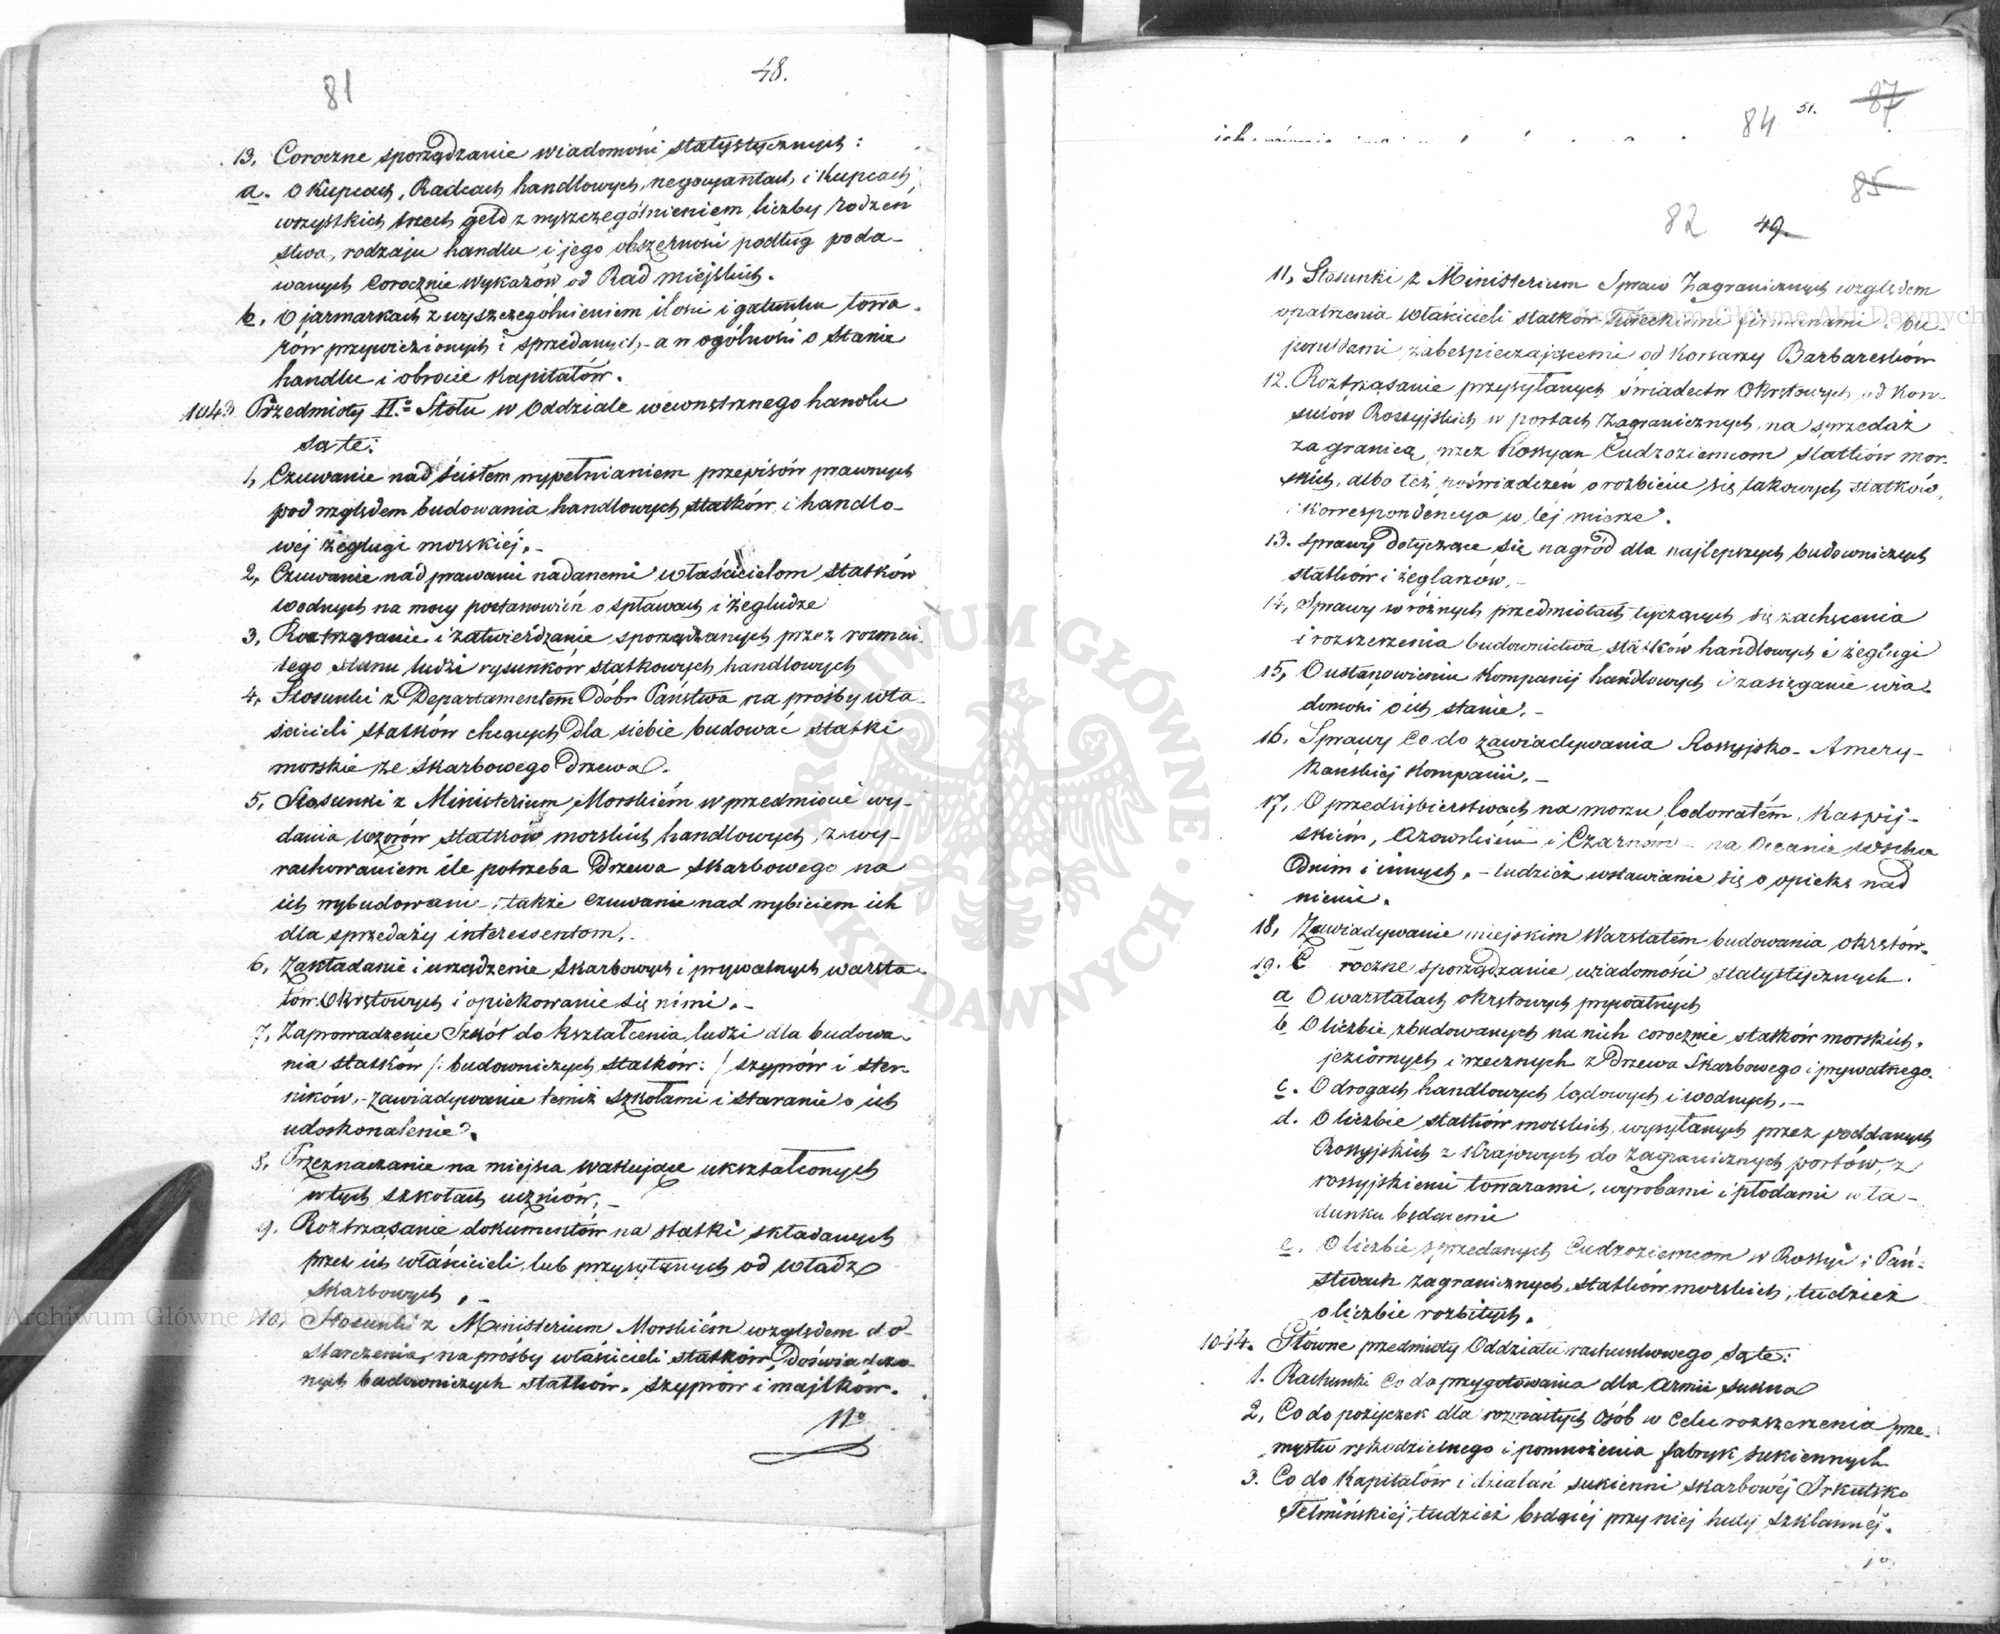 81
48.
13, Coroczne sporządzanie wiadomości statystycznych:
a. o Kupcach, Radcach handlowych, negocyantach, i Kupcach
wszystkich trzech geld z wyszczególnieniem liczby rodzeń
stwa, rodzaju handlu i jego obszerności podług poda-
wanych Corocznie Wykazów od Rad Miejskich.
b, o jarmarkach z wyszczególnieniem ilości i gatunku towa-
rów przywiezionych i sprzedanych - a w ogólności o stanie
handlu i obrocie Kapitałów.
1043 Przedmioty IIgo Stołu w Oddziale wewnętrznego handlu
są te:
1, Czuwanie nad ścisłem wypełnianiem przepisów prawnych
pod względem budowania handlowych statków, i handlo-
wéj żeglugi morskiéj. -
2, Czuwanie nad prawami nadanemi właścicielom statków
wodnych na mocy postanowień o spławach i żegludze
3, Roztrząsanie i zatwierdzanie sporządzanych przez rozmai-
tego stanu ludzi rysunków statkowych handlowych
4, Stosunki z Departamentem Dóbr Państwa na prośby wła-
ścicieli statków chcących dla siebie budować statki
morskie ze skarbowego drzewa. -
5, Stosunki z Ministerium Morskiém w przedmiocie wy-
dania wzorów statków morskich handlowych, z wy-
rachowaniem ile potrzeba drzewa skarbowego na
ich wybudowanie, także czuwanie nad wybiciem ich
dla sprzedaży interessentom.
6, Zakładanie i urządzenie Skarbowych i prywatnych warszta-
tów Okrętowych i opiekowanie się nimi. -
7, Zaprowadzenie Szkół do kształcenia ludzi dla budowa-
nia statków /: budowniczych statków: / szyprów i ster-
ników, - zawiadywanie temiż szkołami i staranie o ich
udoskonalenie.
8, Przeznaczanie na miejsca wakujące ukształconych
w tych szkołach uczniów. -
9. Roztrząsanie dokumentów na statki składanych
przez ich właścicieli, lub przysyłanych od władz
Skarbowych. -
10, Stosunki z Ministerium Morskiém względem do-
starczenia, na prośby właścicieli statków, doświadczo-
nych budowniczych statków, szyprów i majtków.
11o
84
51.
87
85
82
49.
11, Stosunki z Ministerium Spraw Zagranicznych względem
opatrzenia właścicieli statków tureckiemi firmanami i bu-
juruldami zabespieczającemi od Korsarzy Barbaresków
12. Roztrząsanie przysyłanych świadectw Okrętowych od Kon-
sulów Rossyjskich w portach Zagranicznych, na sprzedaż
za granicą, przez Rossyan Cudzoziemcom statków mor-
skich, albo téż poświadczeń o rozbiciu się takowych statków,
i Korrespondencya w téj mierze.
13. Sprawy dotyczące się nagród dla najlepszych budowniczych
statków i żeglarzów. -
14, Sprawy w różnych przedmiotach tyczących się zachęcenia
i rozszerzenia budownictwa statków handlowych i żeglugi
15, O ustanowieniu Kompanij handlowych i zasięganie wia-
domości o ich stanie. -
16. Sprawy Co do zawiadywania Rossyjsko-Amery-
kańskiéj Kompanii. -
17, O przedsiębierstwach na morzu lodowatém, Kaspij-
skiém, Azowskiém i Czarném - na Oceanie Wscho
dnim i innych. - tudzież wstawianie się o opiekę nad
niemi.
18, Zawiadywanie miejskim Warsztatem budowania okrętów.
19. C roczne sporządzanie wiadomości statystycznych.
a O warsztatach okrętowych prywatnych
b O liczbie zbudowanych na nich corocznie statków morskich,
jeziórnych i rzecznych z drzewa Skarbowego i prywatnego.
c. O drogach handlowych lądowych i wodnych. -
d. O liczbie statków morskich, wysyłanych przez poddanych
Rossyjskich z Krajowych do Zagranicznych portów, z
rossyjskiemi towarami, wyrobami i płodami w ła-
dunku będącemi
e. O liczbie sprzedanych Cudzoziemcom w Rossyi i Pań-
stwach Zagranicznych, statków morskich, tudzież
o liczbie rozbitych.
1044. Główne przedmioty Oddziału rachunkowego są te:
1. Rachunki Co do przygotowania dla Armii Sukna
2, Co do pożyczek dla rozmaitych osób w celu rozszerzenia prze-
mysłu rękodzielnego i pomnożenia fabryk sukiennych
3. Co do Kapitałów i działań sukienni skarbowéj Irkutsko
Telmińskiéj, tudzież będącéj przy niéj huty szklannéj.
Archiwum Główne Akt Dawnych
Archiwum Główne Akt Dawnych
ARCHIWUM GŁÓWNE AKT DAWNYCH